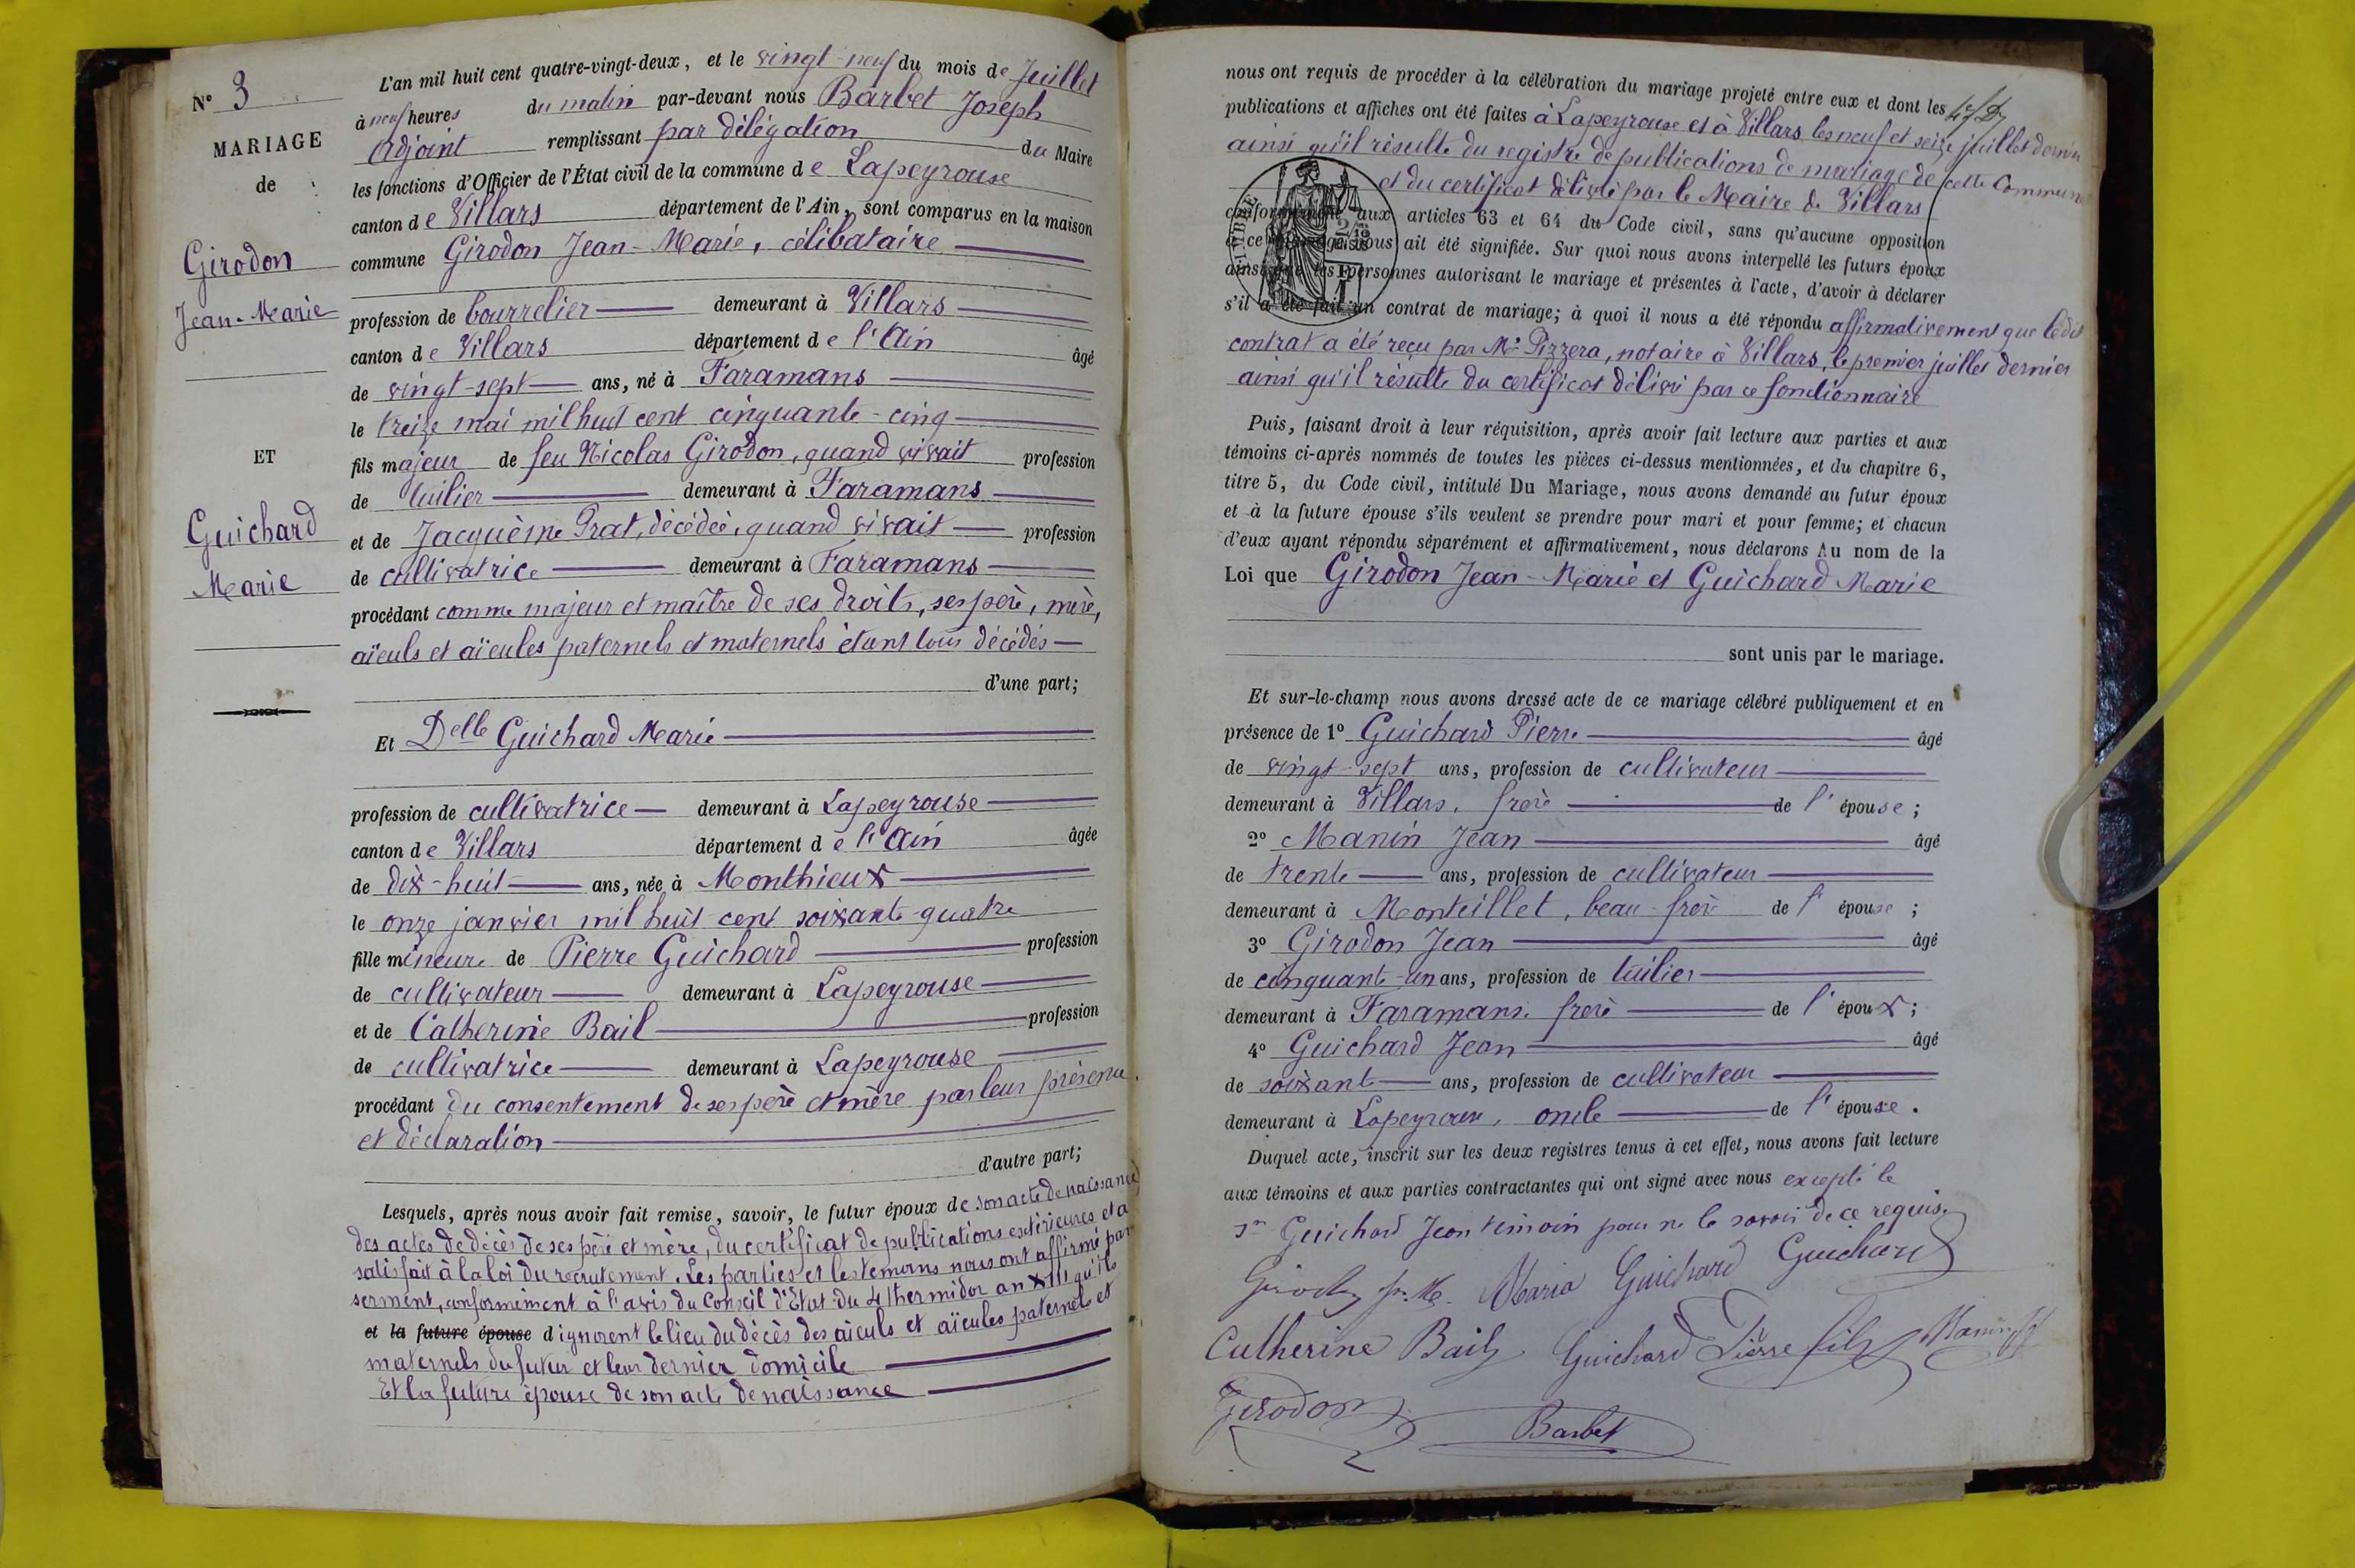 N° 3
MARIAGE
de
Girodon
Jean-Marie
ET
Guichard
Marie
L'an mil huit cent quatre-vingt-deux, et le vingt-neuf du mois de Juillet
à neuf heures du matin par-devant nous Barbet Joseph
Adjoint remplissant par délégation du Maire
les fonctions d'Officier de l'État civil de la commune de Lapeyrouse
canton de Villars département de l'Ain, sont comparus en la maison
commune Girodon Jean-Marie, célibataire
profession de bourrelier demeurant à Villars
canton de Villars département de l'Ain âgé
de vingt-sept ans, né à Faramans
le treize mai mil huit cent cinquante-cinq
fils majeur de feu Nicolas Girodon, quand vivait profession
de tuilier demeurant à Faramans
et de Jacquème Prat, décédée, quand vivait profession
de cultivatrice demeurant à Faramans
procédant comme majeur et maître de ses droits, ses père, mère,
aïeuls et aïeules paternels et maternels étant tous décédés
d'une part;
Et Delle Guichard Marie
profession de cultivatrice demeurant à Lapeyrouse
canton de Villars département de l'Ain âgée
de dix-huit ans, née à Monthieux
le onze janvier mil huit cent soixante-quatre
fille mineure de Pierre Guichard profession
de cultivateur demeurant à Lapeyrouse
et de Catherine Bail profession
de cultivatrice demeurant à Lapeyrouse
procédant du consentement de ses père et mère par leur présence
et déclaration
d'autre part;
Lesquels, après nous avoir fait remise, savoir, le futur époux de son acte de naissance
des actes de décès de ses père et mère, du certificat de publications extérieures et a
satisfait à la loi du recrutement. Les parties et les témoins nous ont affirmé par
serment, conformément à l'avis du Conseil d'État du 4 thermidor an XIII qu'ils
et la future épouse d ignorent le lieu du décès des aïeuls et aïeules paternels et
maternels du futur et leur dernier domicile
Et la future épouse de son acte de naissance
nous ont requis de procéder à la célébration du mariage projeté entre eux et dont les
publications et affiches ont été faites à Lapeyrouse et à Villars les neuf et seize juillet dernier
ainsi qu'il résulte du registre de publications de mariage de cette Commune
et du certificat délivré par le Maire de Villars
conformément aux articles 63 et 64 du Code civil, sans qu'aucune opposition
à ce mariage nous ait été signifiée. Sur quoi nous avons interpellé les futurs époux
ainsi que les personnes autorisant le mariage et présentes à l'acte, d'avoir à déclarer
s'il a été fait un contrat de mariage; à quoi il nous a été répondu affirmativement que ledit
contrat a été reçu par Me Pizzera, notaire à Villars, le premier juillet dernier
ainsi qu'il résulte du certificat délivré par ce fonctionnaire
Puis, faisant droit à leur réquisition, après avoir fait lecture aux parties et aux
témoins ci-après nommés de toutes les pièces ci-dessus mentionnées, et du chapitre 6,
titre 5, du Code civil, intitulé Du Mariage, nous avons demandé au futur époux
et à la future épouse s'ils veulent se prendre pour mari et pour femme; et chacun
d'eux ayant répondu séparément et affirmativement, nous déclarons Au nom de la
Loi que Girodon Jean-Marie et Guichard Marie
sont unis par le mariage.
Et sur-le-champ nous avons dressé acte de ce mariage célébré publiquement et en
présence de 1° Guichard Pierre âgé
de vingt-sept ans, profession de cultivateur
demeurant à Villars, frère de l'épouse;
2° Manin Jean âgé
de trente ans, profession de cultivateur
demeurant à Monteillet, beau-frère de l'épouse;
3° Girodon Jean âgé
de cinquante-un ans, profession de tuilier
demeurant à Faramans, frère de l'époux;
4° Guichard Jean âgé
de soixante ans, profession de cultivateur
demeurant à Lapeyrouse, oncle de l'épouse.
Duquel acte, inscrit sur les deux registres tenus à cet effet, nous avons fait lecture
aux témoins et aux parties contractantes qui ont signé avec nous excepté le
sr Guichard Jean témoin pour ne le savoir de ce requis.
Girodon J. M. Maria Guichard Guichard
Catherine Bail Guichard Pierre fils Manin
Girodon Barbet